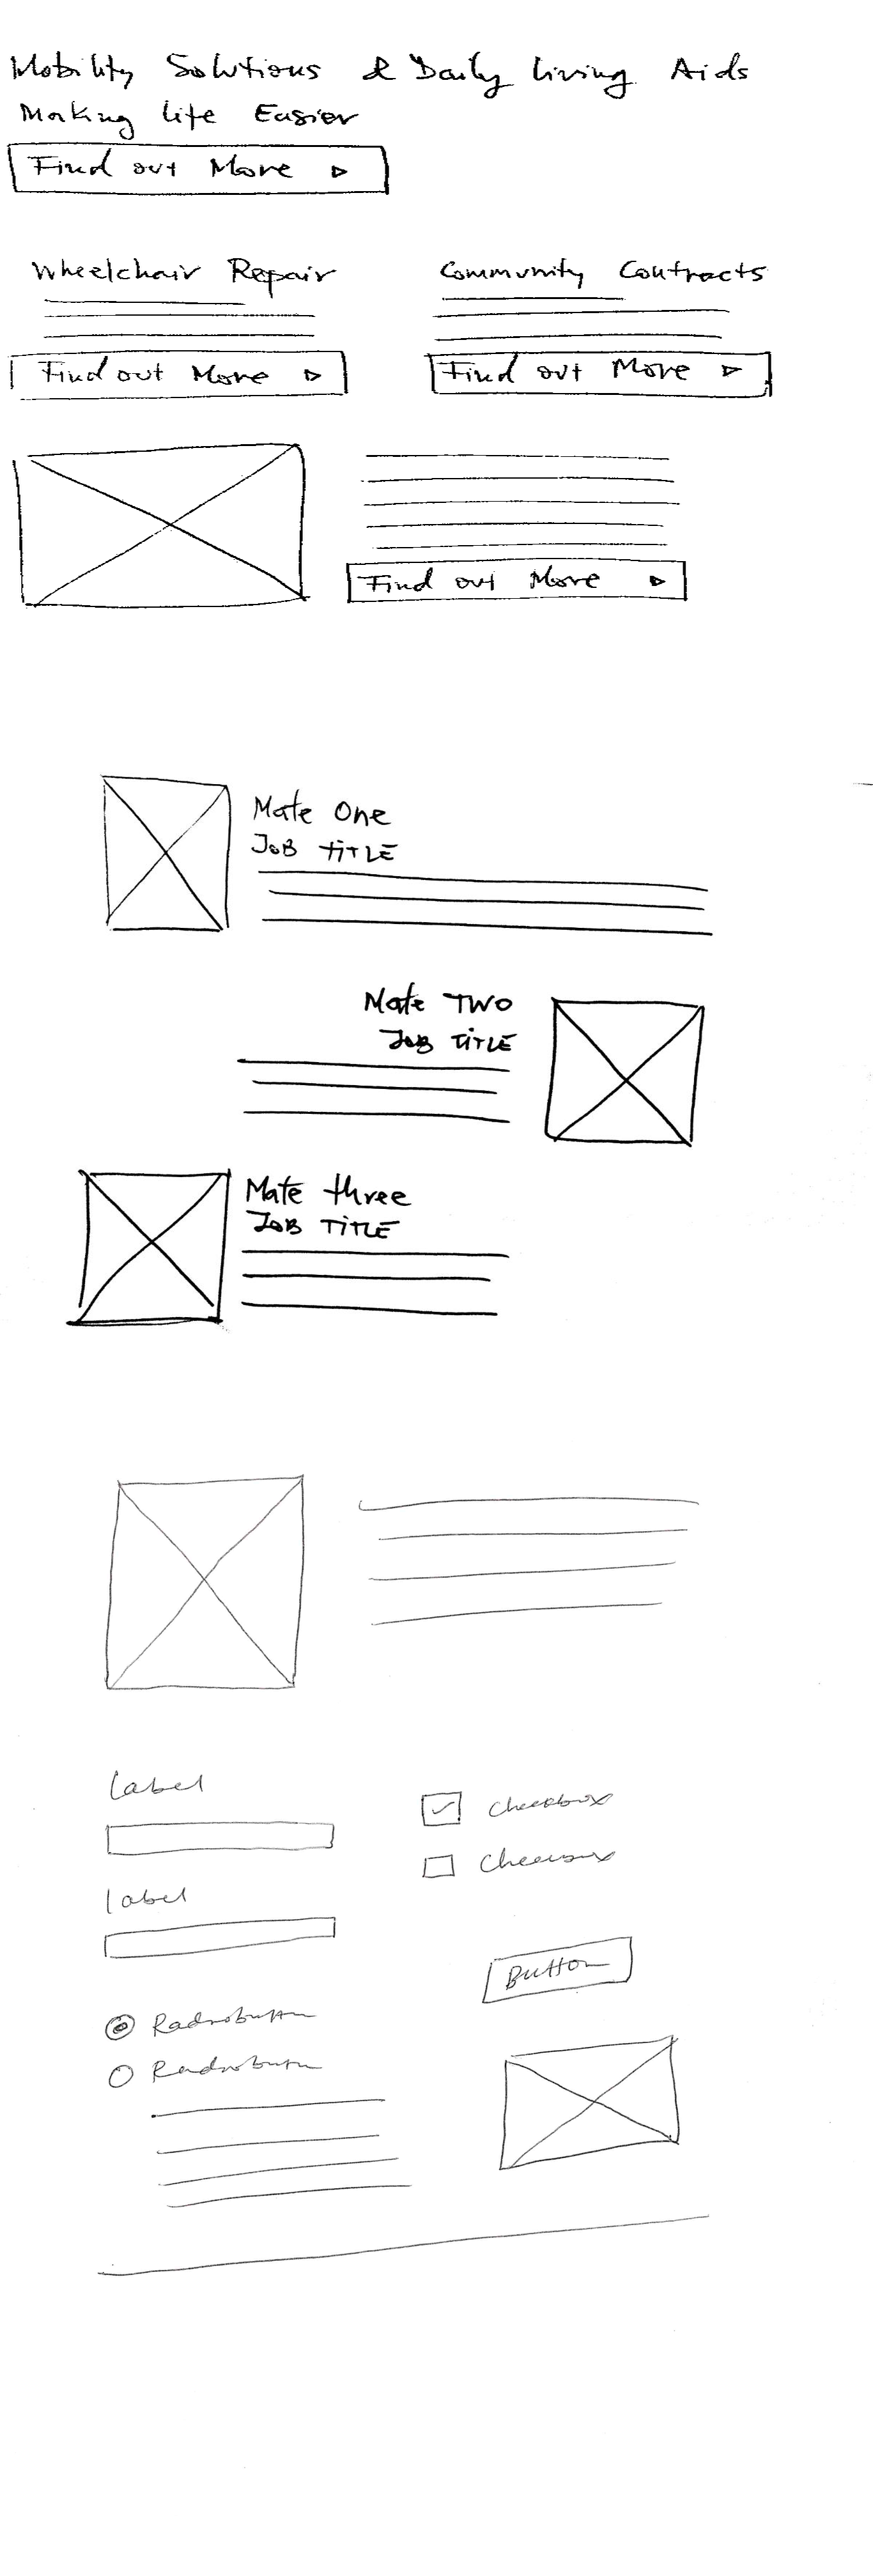 Mobility Solutions & Daily living Aids
Making life Easier
Find out More
Wheelchair Repair
Community Contracts
Find out More
Find out More
Find out More
Mate One
JOB TITLE
Mate TWO
JOB TITLE
Mate three
JOB TITLE
Label
Checkbox
Checkbox
label
Button
Radiobutton
Radiobutton